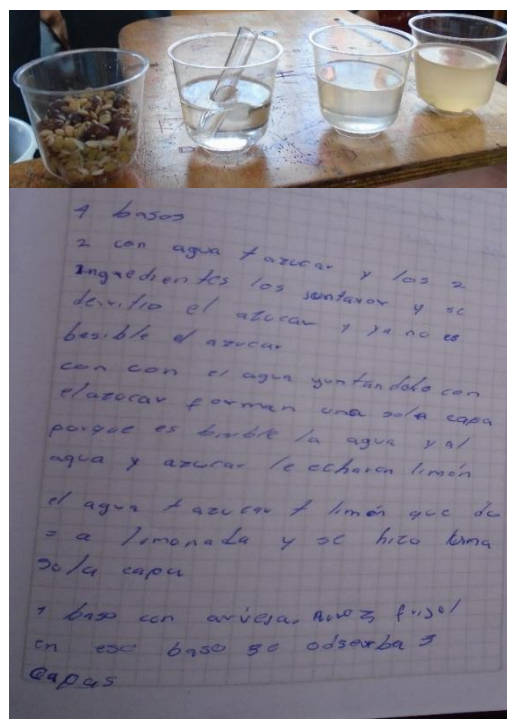 4 basos
2 con agua + azucar y los 2
Ingredientes los juntaron y se
derritio el azucar y ya no es
besible el azucar
con con el agua yuntandolo con
el azucar forman una sola capa
porque es bisible la agua y al
agua y azucar le echaron limón
el agua + azucar + limón que da
= a limonada y se hizo una
sola capa
1 baso con arviejas, Arroz, frijol
en ese baso se odserba 3
capas